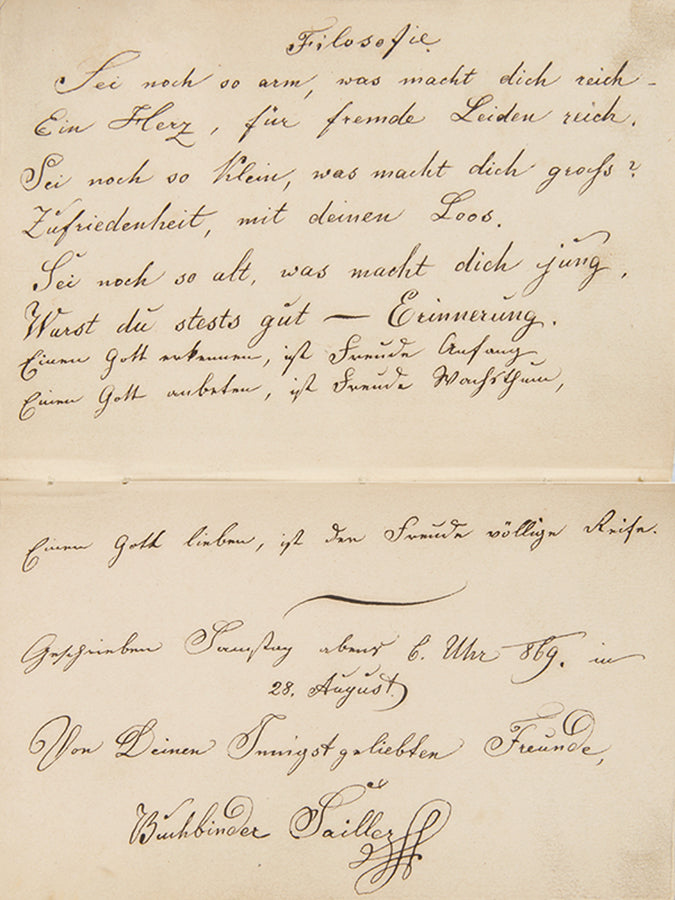 Filosofie.
Sei noch so arm, was macht dich reich –
Ein Herz, für fremde Leiden reich.
Sei noch so klein, was macht dich grofs?
Zufriedenheit, mit deinen Loos.
Sei noch so alt, was macht dich jung,
Warst du stests gut — Erinnerung.
Einen Gott erkennen, ist Freude Anfang
Einen Gott anbeten, ist Freude Wachsthum,
Einen Gott lieben, ist der Freude völlige Reife.
Geschrieben Samstag abens 6. Uhr 869. in
28. August.
Von Deinen Innigst geliebten Freunde,
Buchbinder Sailler